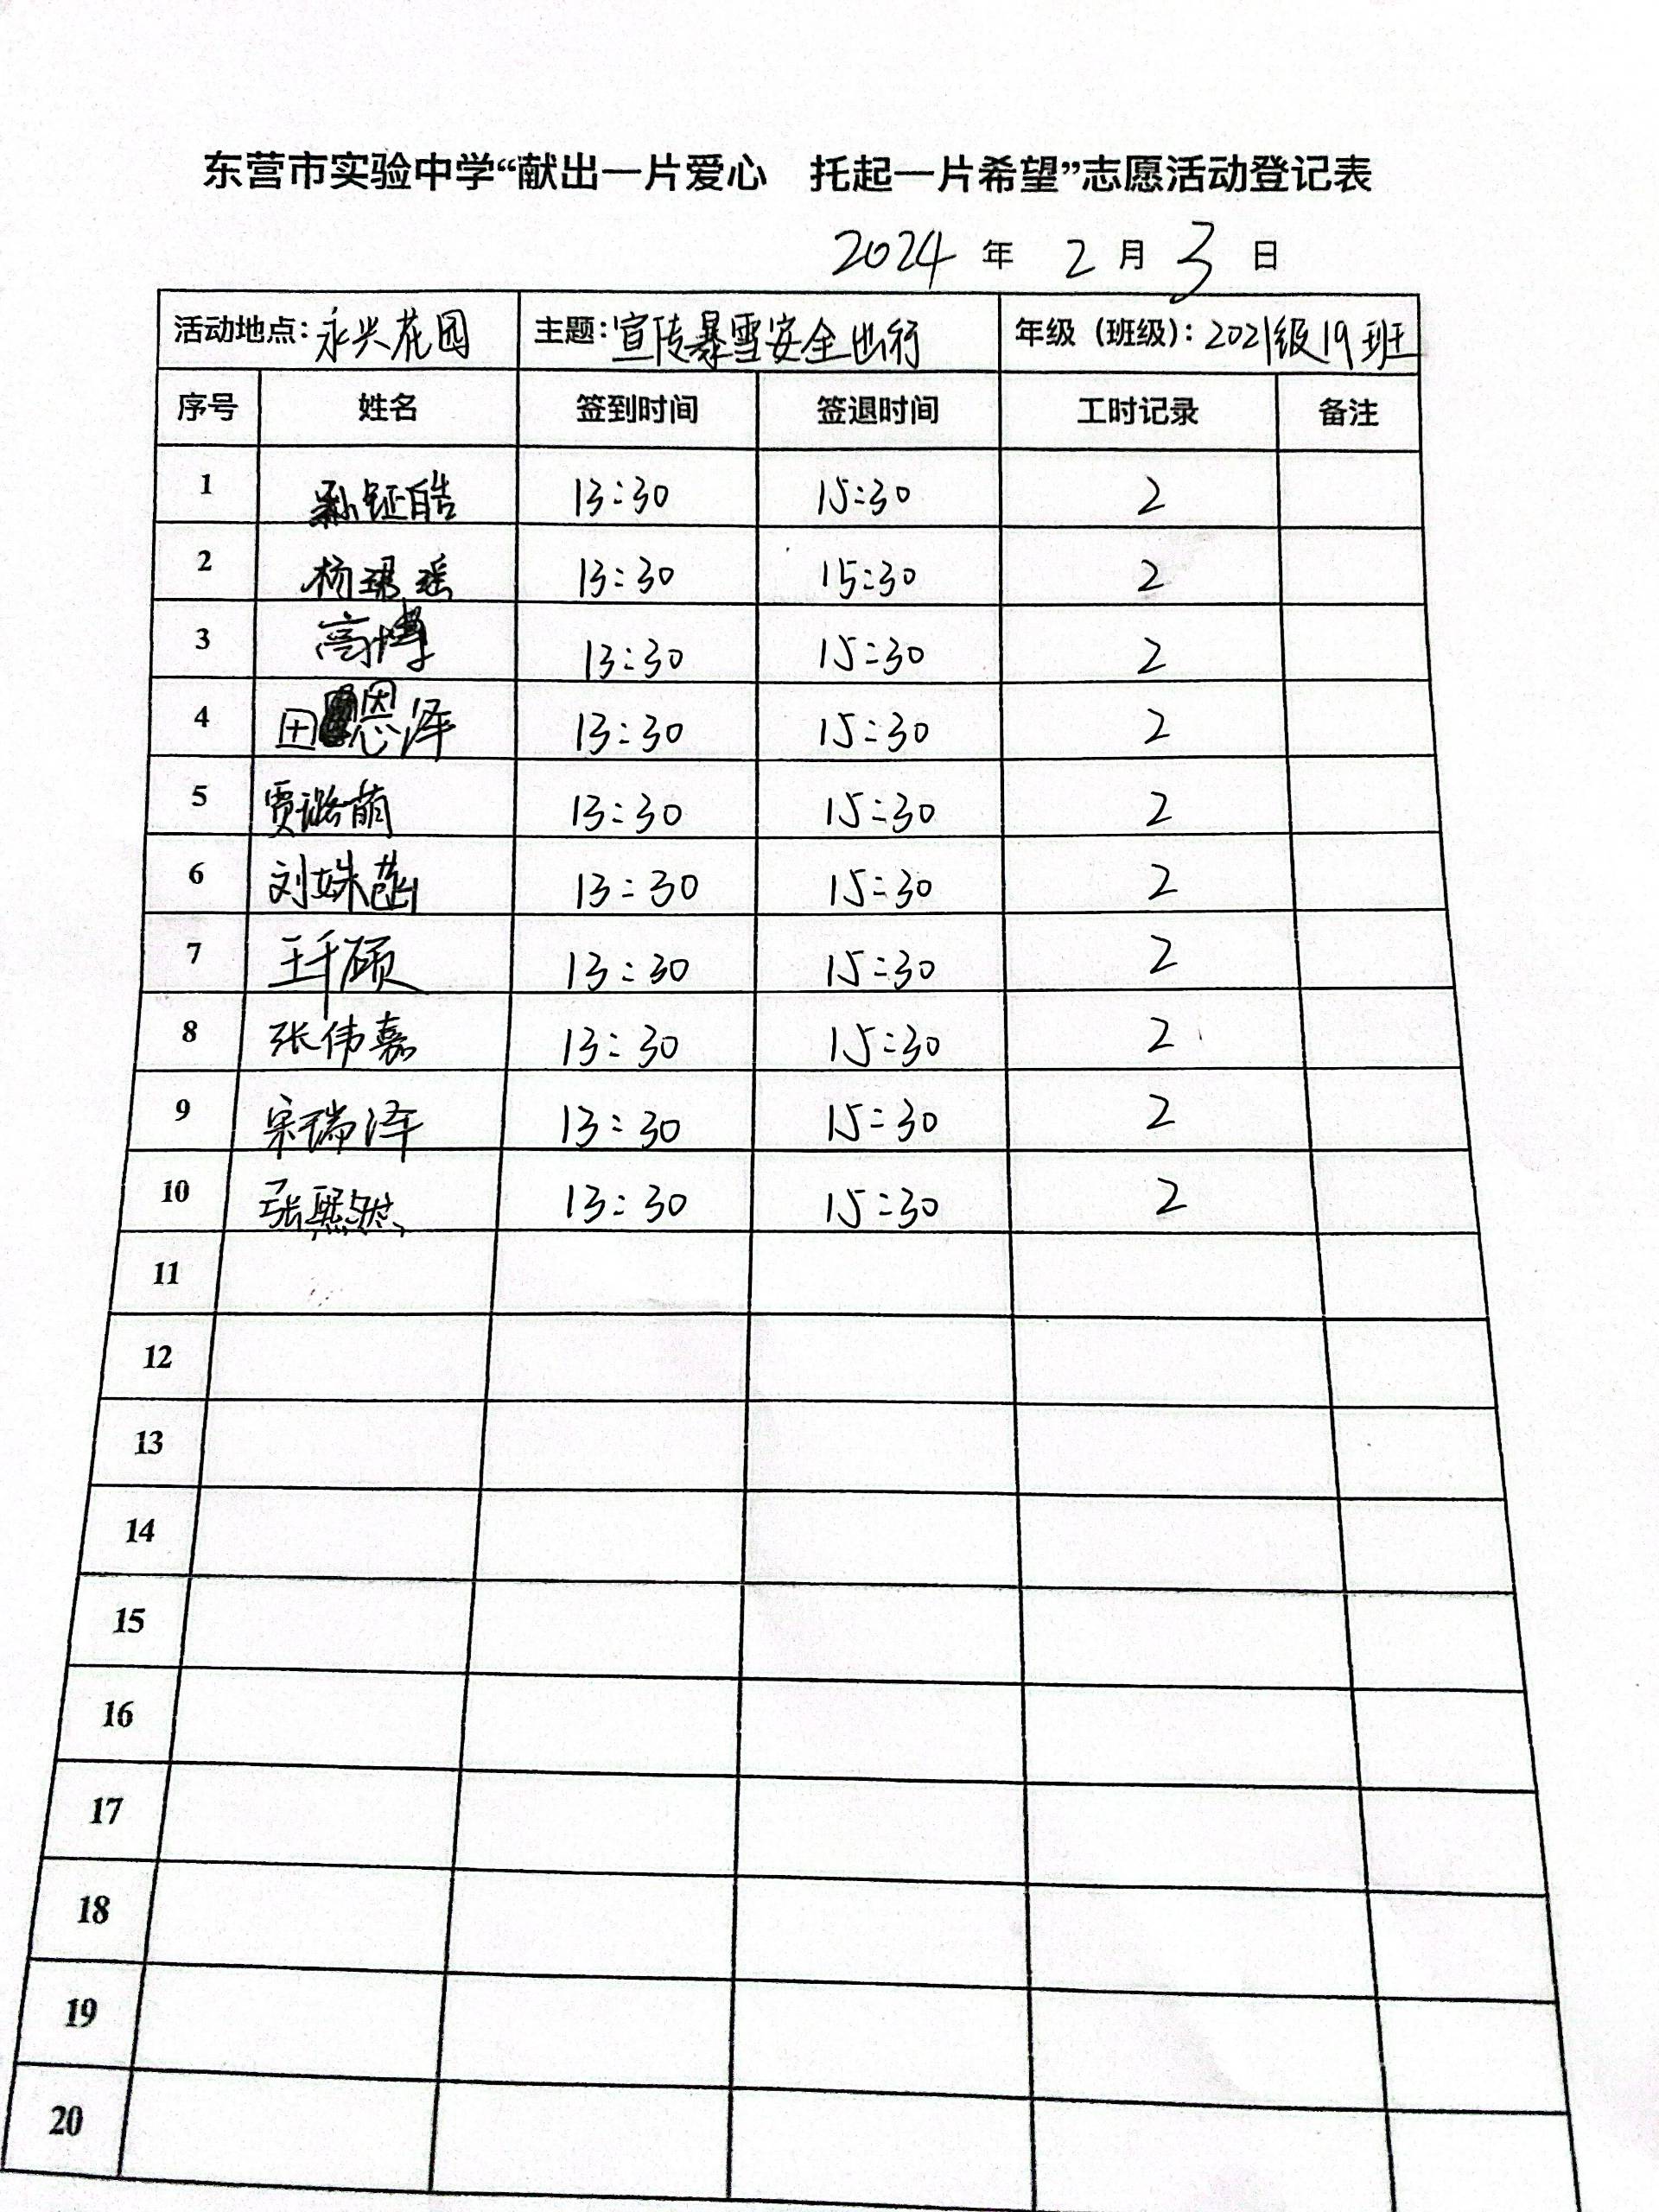 东营市实验中学“献出一片爱心 托起一片希望”志愿活动登记表
2024 年 2 月 3 日
活动地点：永兴花园 主题：宣传暴雪安全出行 年级（班级）：2021级19班
序号 姓名 签到时间 签退时间 工时记录 备注
1 孙钲皓 13:30 15:30 2
2 杨珺瑶 13:30 15:30 2
3 高博 13:30 15:30 2
4 田恩泽 13:30 15:30 2
5 贾潞萌 13:30 15:30 2
6 刘姝菡 13:30 15:30 2
7 王千硕 13:30 15:30 2
8 张伟嘉 13:30 15:30 2
9 宋瑞泽 13:30 15:30 2
10 张熙然 13:30 15:30 2
11
12
13
14
15
16
17
18
19
20